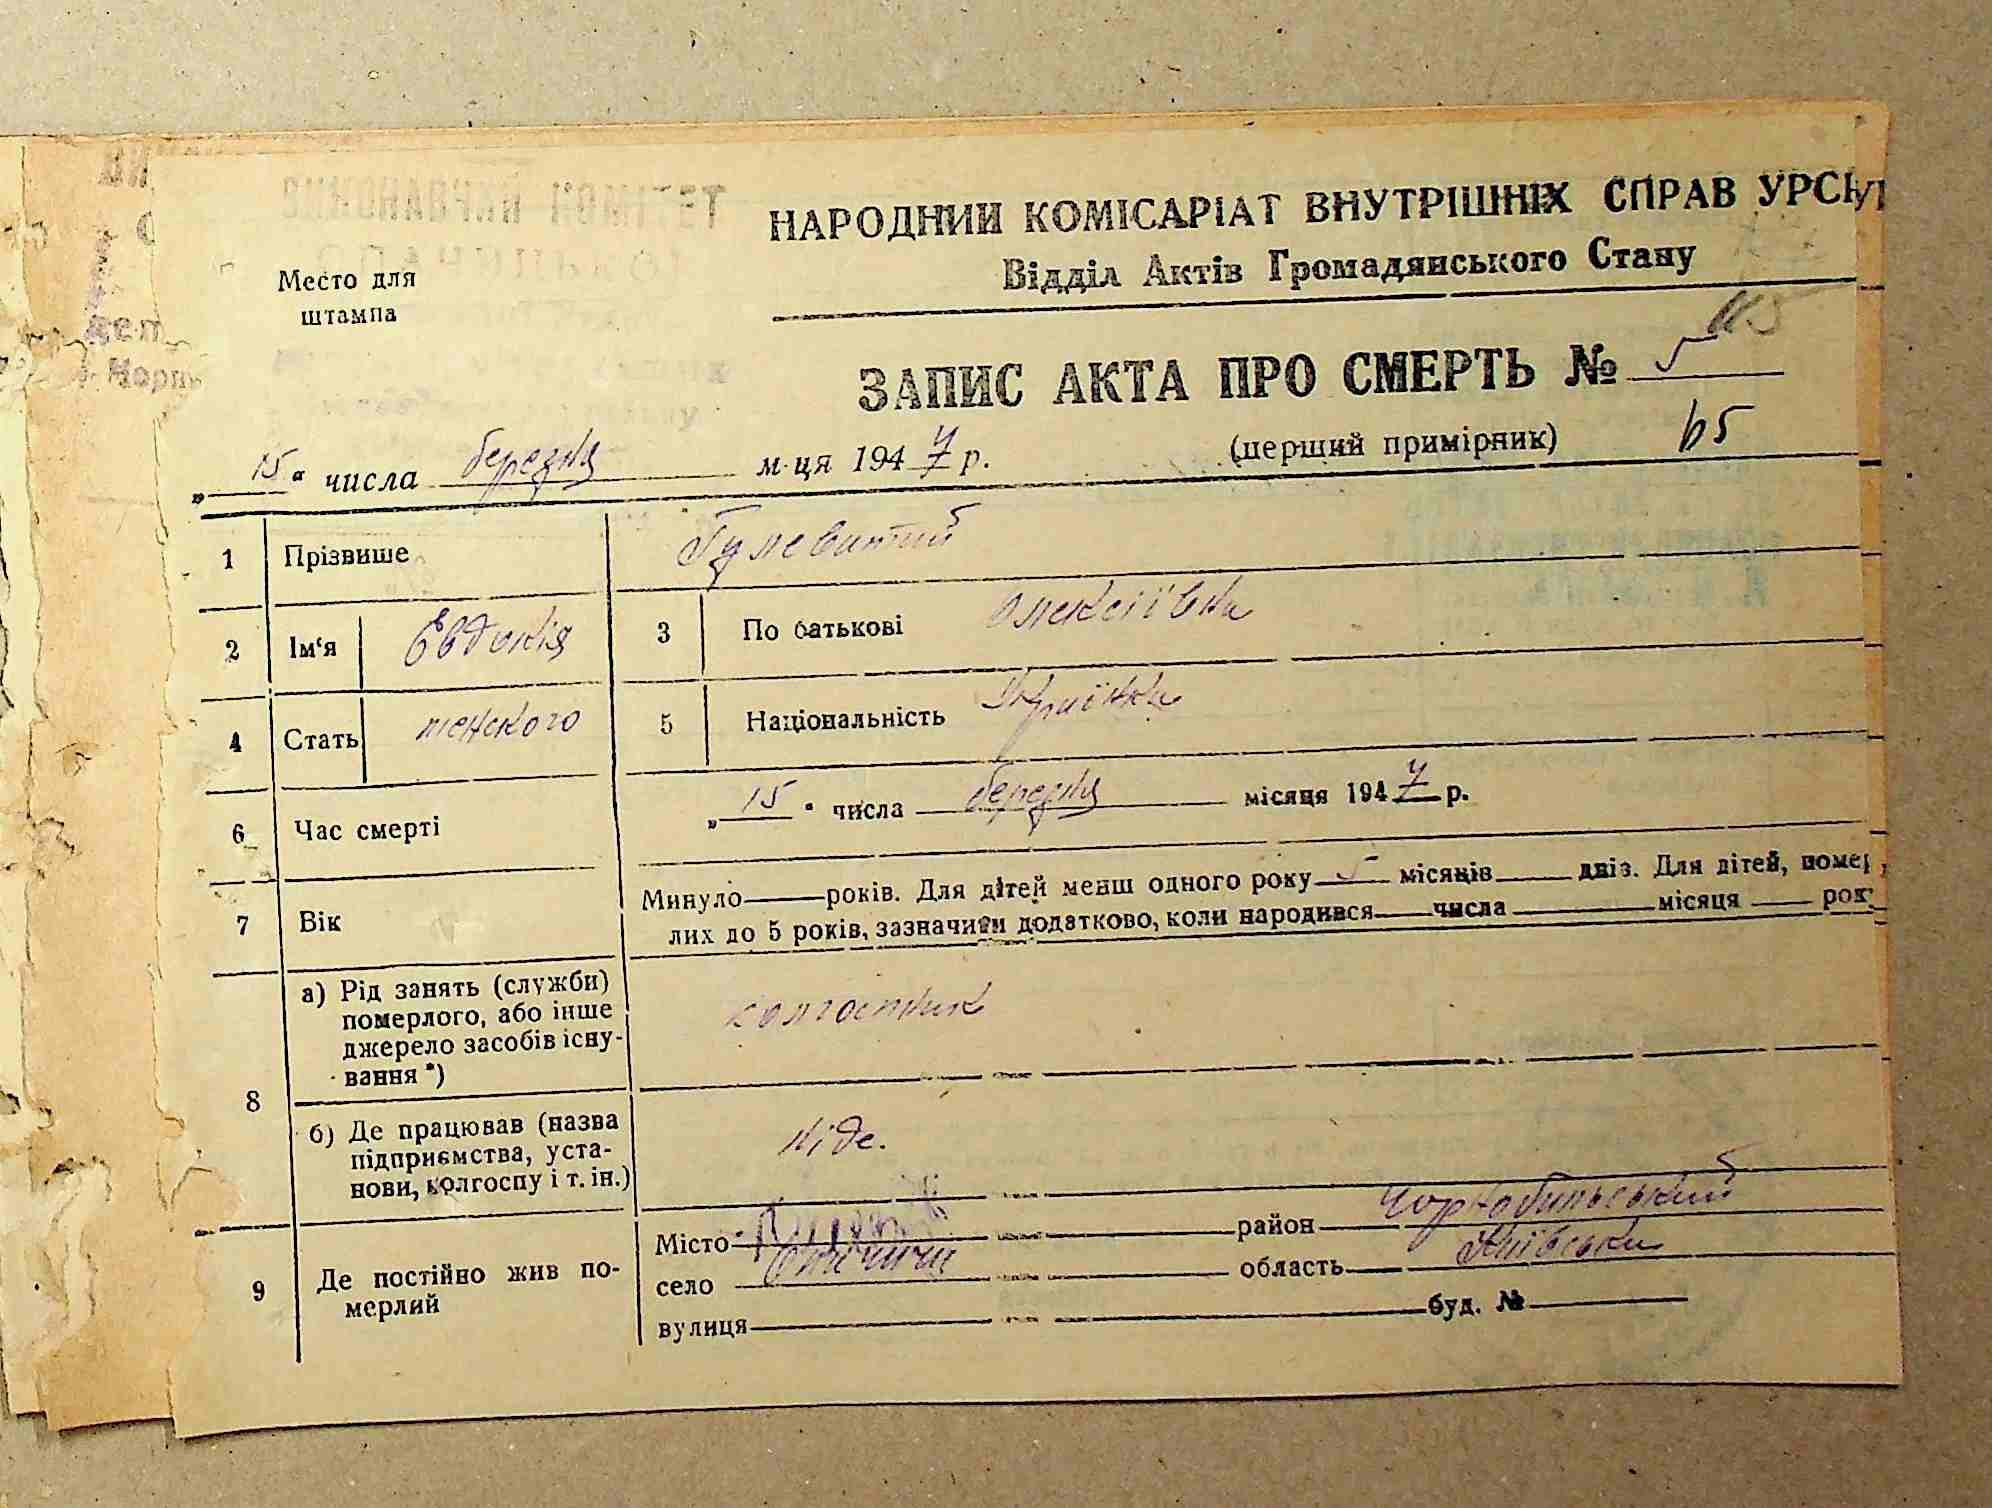 НАРОДНИЙ КОМІСАРІАТ ВНУТРІШНІХ СПРАВ УРСР
Відділ Актів Громадянського Стану
Место для
штампа
115
ЗАПИС АКТА ПРО СМЕРТЬ № 5
(перший примірник) 65
„15“ числа березня м-ця 1947 р.
1 Прізвише Гулеватий
2 Ім'я Євдокія 3 По батькові Олексіївка
4 Стать женского 5 Національність Украінка
6 Час смерті „15“ числа березня місяця 1947 р.
7 Вік Минуло років. Для дітей менш одного року 5 місяців днів. Для дітей, помер
лих до 5 років, зазначити додатково, коли народився числа місяця рок
8 а) Рід занять (служби)
померлого, або інше
джерело засобів існу-
вання *) колгоспник
б) Де працював (назва
підприємства, уста-
нови, колгоспу і т. ін.) ніде.
9 Де постійно жив по-
мерлий
Місто район Чорнобильський
село Опачичи область Київська
вулиця буд. №